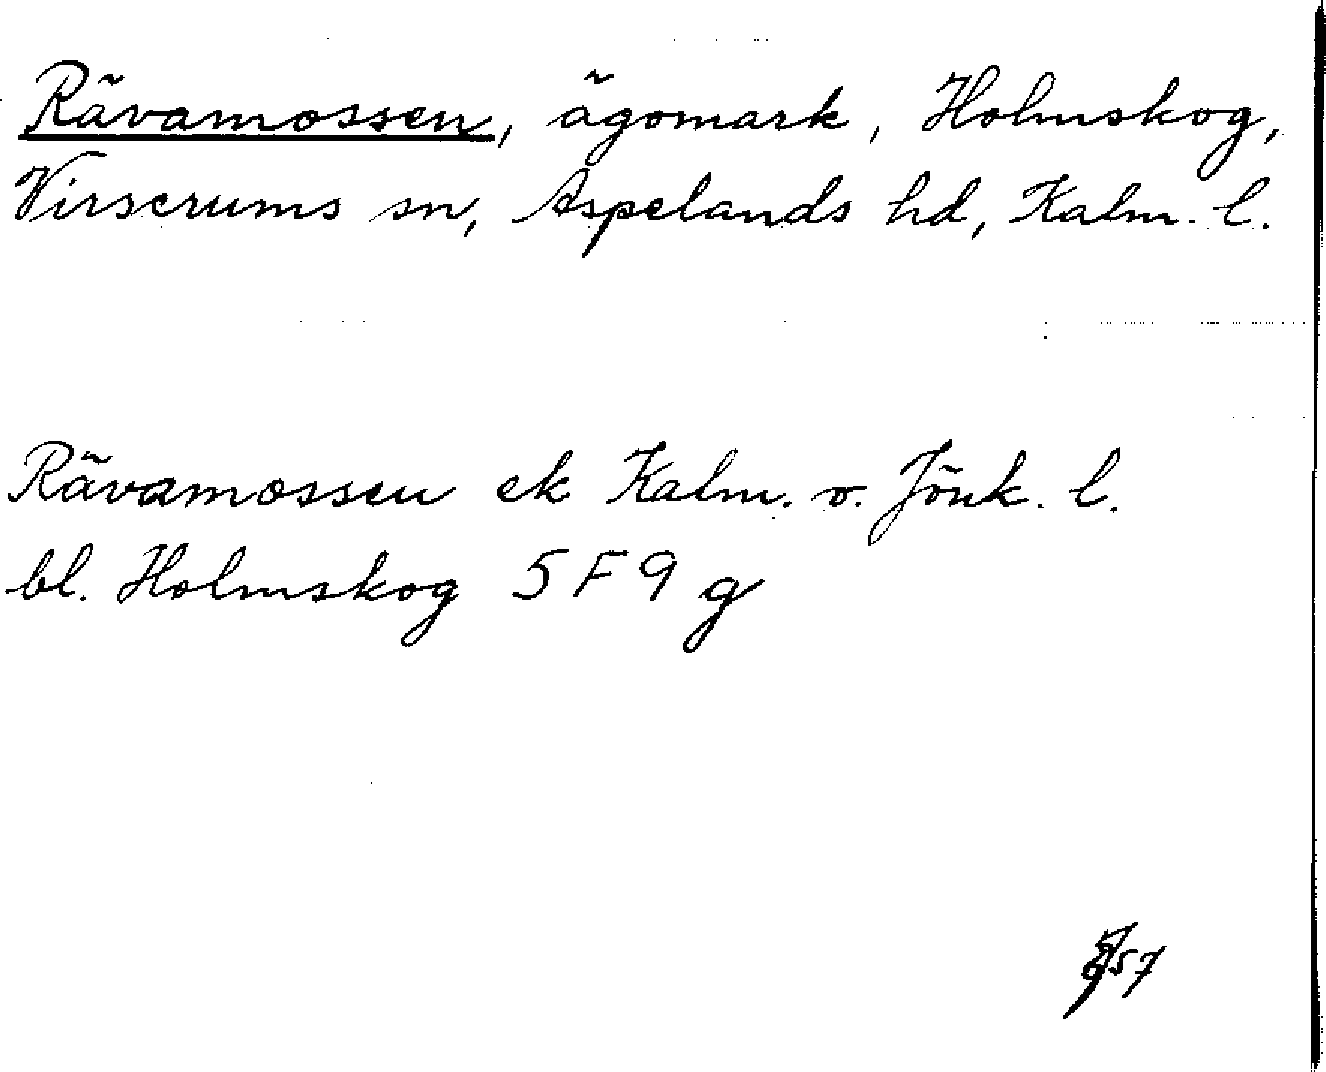 Rävamossen, ägomark, Holmskog,
Virserums sn, Aspelands hd, Kalm. l.
Rävamossen ek Kalm. o. Jönk. l.
bl. Holmskog 5 F 9 g